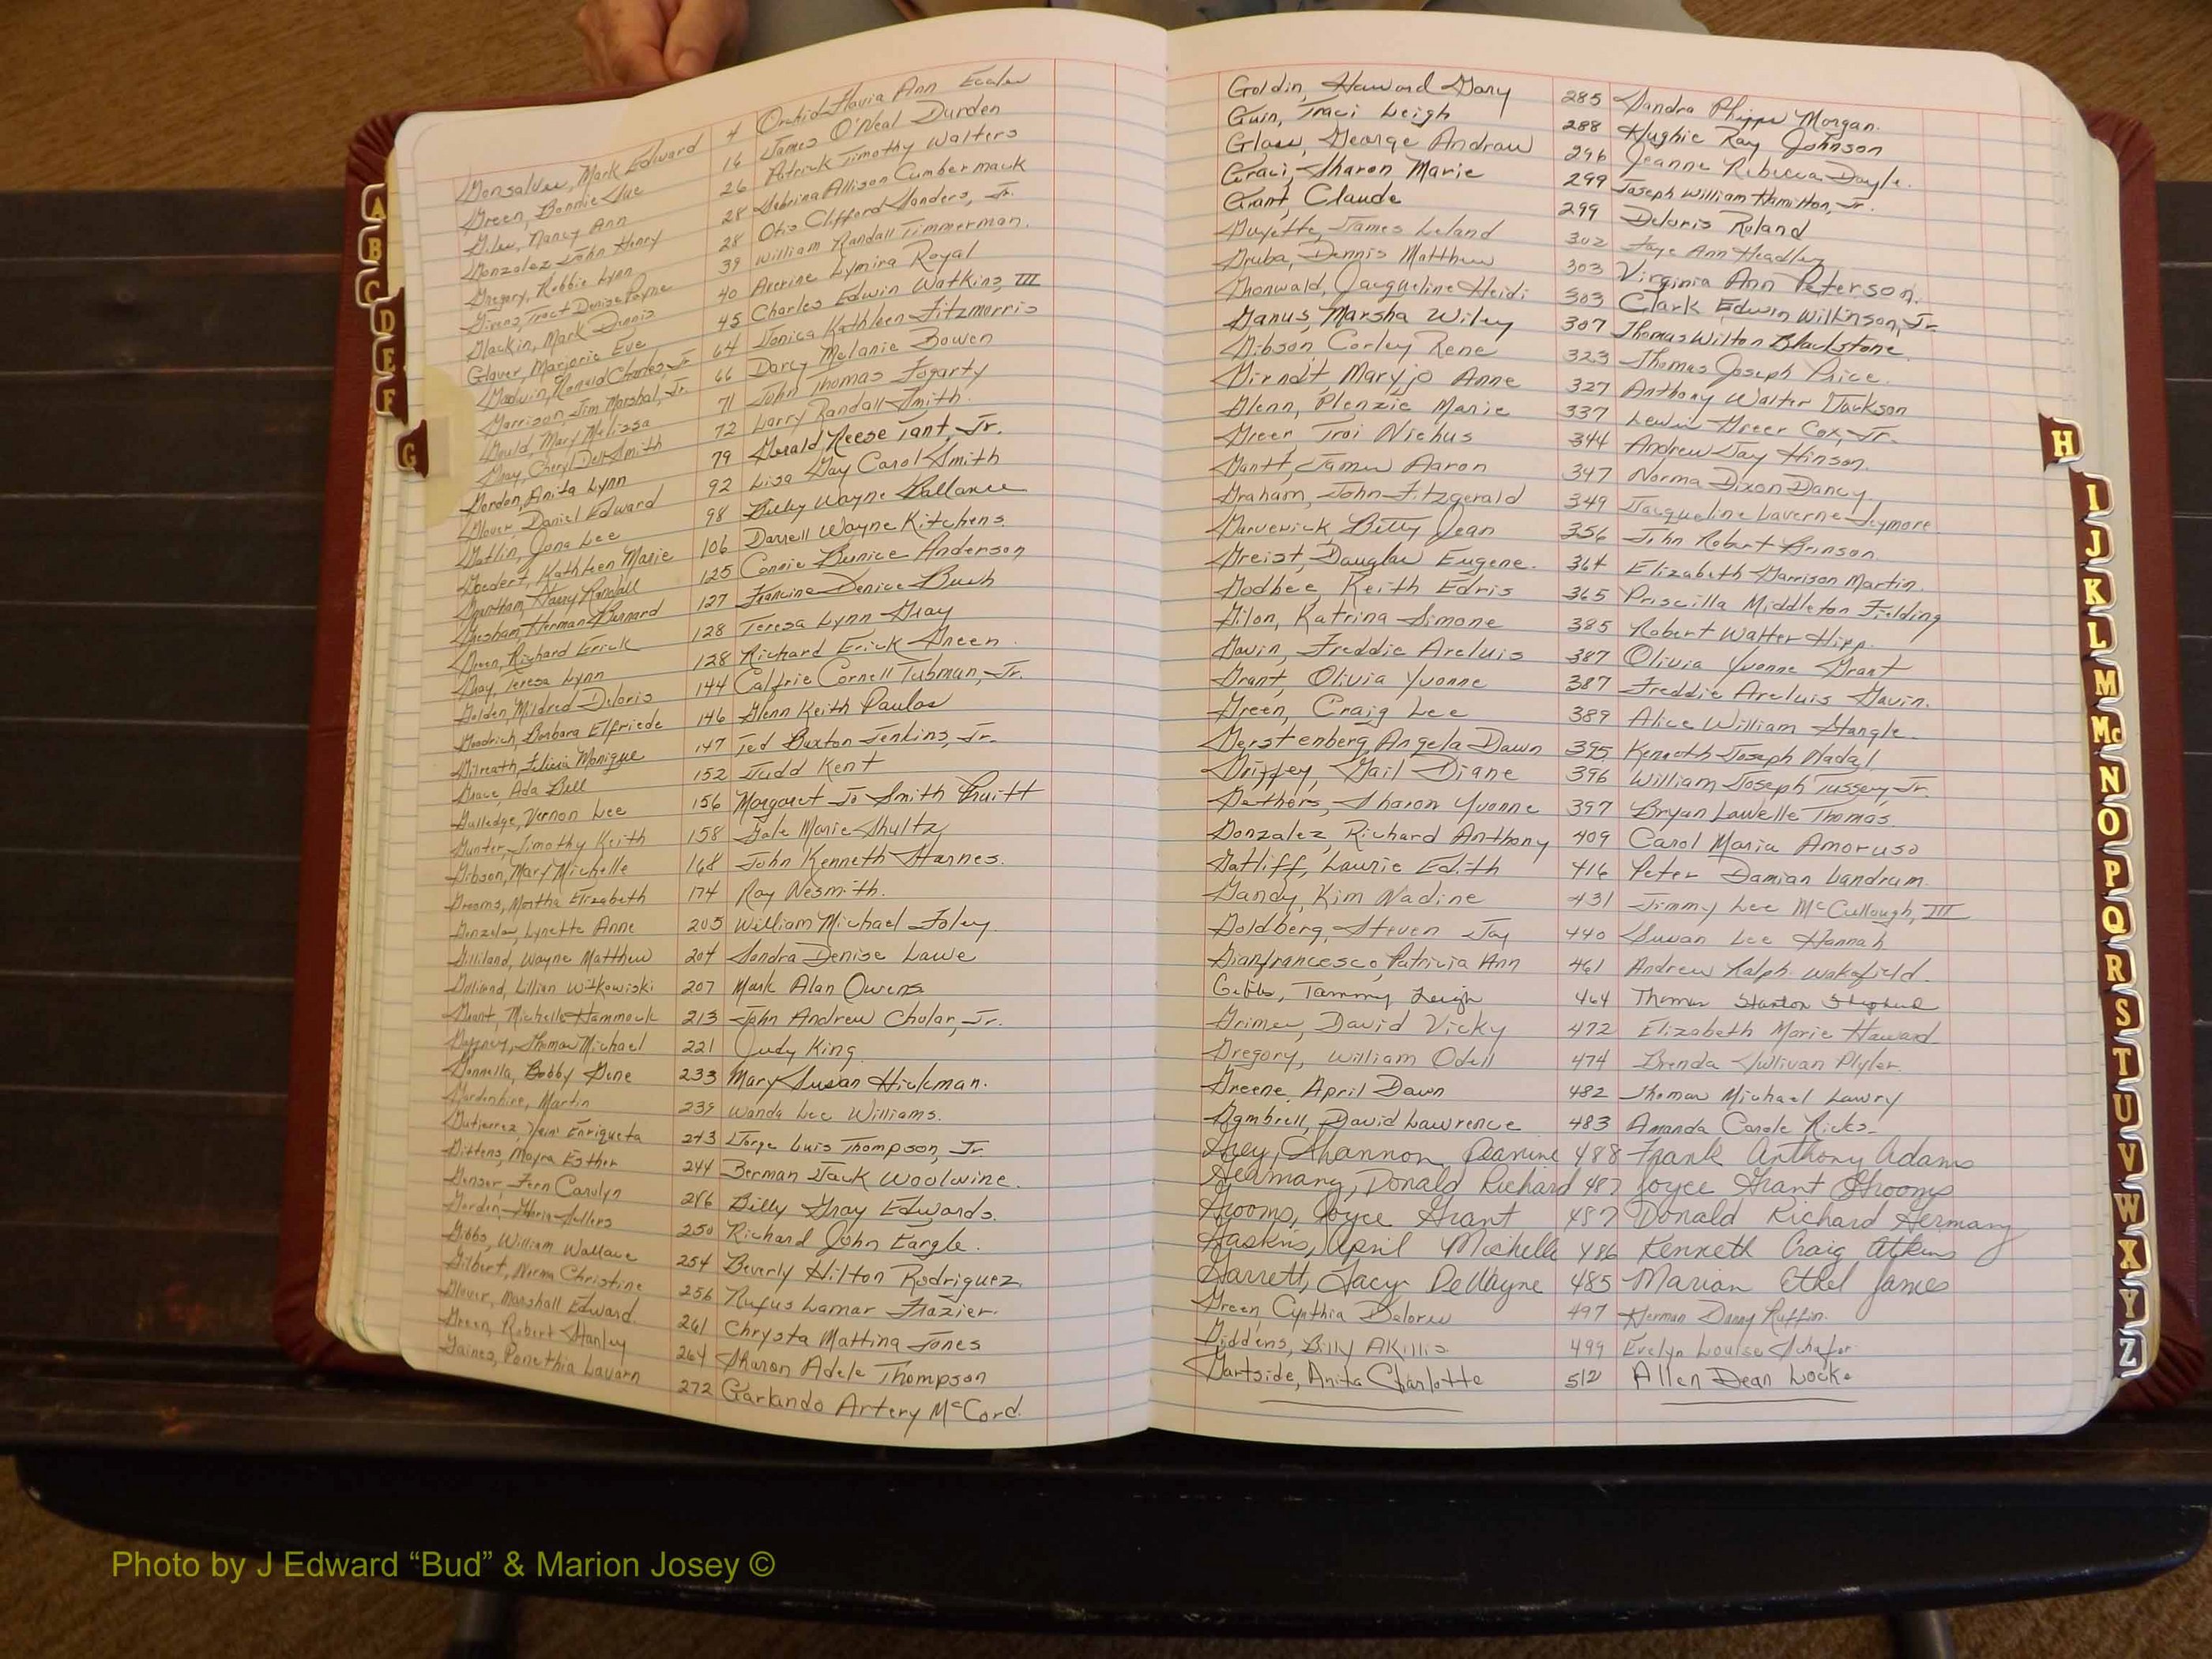 Gonsalves, Mark Edward 4 Orchid Flavia Ann Eccles
Green, Bonnie Sue 16 James O'Neal Durden
Giles, Nancy Ann 26 Patrick Timothy Walters
Gonzalez, John Henry 28 Sebrina Allison Cumbermack
Gregory, Robbie Lynn 28 Otis Clifford Sanders, Jr.
Givens, Traci Denise Payne 39 William Randall Timmerman.
Glackin, Mark Dennis 40 Averine Lymira Royal
Glover, Marjorie Eve 45 Charles Edwin Watkins, III
Godwin, Ronald Charles, Jr 64 Jonica Kathleen Fitzmorris
Garrison, Jim Marshal, Jr. 66 Darcy Melanie Bowen
Gould, Mary Melissa 71 John Thomas Fogarty
Gray, Cheryl Dell Smith 72 Larry Randall Smith.
Gordon, Anita Lynn 79 Gerald Reese Tant, Jr.
Glover, Daniel Edward 92 Lisa Gay Carol Smith
Gatlin, Jona Lee 98 Billy Wayne Ballance
Goedert, Kathleen Marie 106 Darrell Wayne Kitchens.
Grantham, Harry Randall 125 Connie Bunice Anderson
Gresham, Herman Bernard 127 Francine Denice Bush
Green, Richard Erick 128 Teresa Lynn Gray
Gray, Teresa Lynn 128 Richard Erick Green.
Golden, Mildred Deloris 144 Calfrie Cornell Tubman, Jr.
Goodrich, Barbara Elfriede 146 Glenn Keith Paulos
Gilreath, Felicia Monique 147 Ted Buxton Jenkins, Jr.
Grace, Ada Bell 152 Judd Kent
Gulledge, Vernon Lee 156 Margaret Jo Smith Pruitt
Gunter, Timothy Keith 158 Gale Marie Shultz
Gibson, Mary Michelle 168 John Kenneth Starnes.
Grooms, Martha Elizabeth 174 Ray Nesmith.
Gonzales, Lynette Anne 203 William Michael Foley.
Gilliland, Wayne Matthew 204 Sandra Denise Lawe
Gilliand, Lillian Witkowiski 207 Mark Alan Owens
Grant, Michelle Hammock 213 John Andrew Cholar, Jr.
Gaffney, Thomas Michael 221 Judy King
Gonnella, Bobby Gene 233 Mary Susan Hickman.
Gardenhire, Martin 239 Wanda Lee Williams.
Gutierrez, Enriqueta 243 Jorge Luis Thompson, Jr
Gittens, Mayra Esther 244 Berman Jack Woolwine.
Genser, Fern Carolyn 246 Billy Gray Edwards.
Gorden, Gloria Sellers 250 Richard John Eargle.
Gibbs, William Wallace 254 Beverly Hilton Rodriguez.
Gilbert, Norma Christine 256 Rufus Lamar Frazier.
Glover, Marshall Edward. 261 Chrysta Matting Jones
Green, Robert Stanley 264 Sharon Adele Thompson
Gaines, Ponethia Lavarn 272 Garlando Artery McCord.
Goldin, Howard Gary 285 Sandra Phipps Morgan.
Guin, Traci Leigh 288 Hughie Ray Johnson
Glass, George Andrew 296 Jeanne Rebecca Doyle.
Graci, Sharon Marie 299 Joseph William Hamilton, Jr.
Grant, Claude 299 Deloris Roland
Guyette, James Leland 302 Faye Ann Headley
Gruba, Dennis Matthew 303 Virginia Ann Peterson.
Gronwald, Jacqueline Heidi 303 Clark Edwin Wilkinson, Jr.
Ganus, Marsha Wiley 307 Thomas Wilton Blackstone.
Gibson, Corley Rene 323 Thomas Joseph Price.
Girndt, Maryjo Anne 327 Anthony Walter Jackson
Glenn, Plenzie Marie 337 Lewis Greer Cox, Jr.
Greer, Troi Nichus 344 Andrew Jay Hinson.
Gantt, James Aaron 347 Norma Dixon Dancy
Graham, John Fitzgerald 349 Jacqueline Laverne Seymore.
Garverick, Betty Jean 356 John Robert Brinson.
Greist, Douglas Eugene. 364 Elizabeth Garrison Martin.
Godbee, Keith Edris 365 Priscilla Middleton Fielding
Gilon, Katrina Simone 385 Robert Walter Hipp.
Gavin, Freddie Areluis 387 Olivia Yvonne Grant
Grant, Olivia Yvonne 387 Freddie Areluis Gavin.
Green, Craig Lee 389 Alice William Stangle.
Gerstenberg, Angela Dawn 395 Kenneth Joseph Nadal
Griffey, Gail Diane 396 William Joseph Tussey, Jr.
Gethers, Sharon Yvonne 397 Bryan Lawelle Thomas.
Gonzalez, Richard Anthony 409 Carol Maria Amoruso
Gatliff, Laurie Edith 416 Peter Damian Landrum.
Gandy, Kim Nadine 431 Jimmy Lee McCullough, III
Goldberg, Steven Jay 440 Susan Lee Hannah
Gianfrancesco, Patricia Ann 461 Andrew Ralph Wakefield.
Gibbs, Tammy Leigh 464 Thomas Stanton Shepherd
Grimes, David Vicky 472 Elizabeth Marie Howard
Gregory, William Odell 474 Brenda Sullivan Plyler.
Greene, April Dawn 482 Thomas Michael Lowry
Gambrell, David Lawrence 483 Amanda Carole Ricks.
Guy, Shannon Jeanine 488 Frank Anthony Adams
Germany, Donald Richard 487 Joyce Grant Grooms
Grooms, Joyce Grant 487 Donald Richard Germany
Gaskins, April Michelle 486 Kenneth Craig Atkins
Garrett, Tracy DeWayne 485 Marian Ethel James
Green, Cynthia Delores 497 Herman Danny Ruffin.
Giddens, Billy AKillis 499 Evelyn Louise Schafer
Gartside, Anita Charlotte 512 Allen Dean Locke
A
B
C
D
E
F
G
H
I
J
K
L
M
Mc
N
O
P
Q
R
S
T
U
V
W
X
Y
Z
Photo by J Edward “Bud” & Marion Josey ©